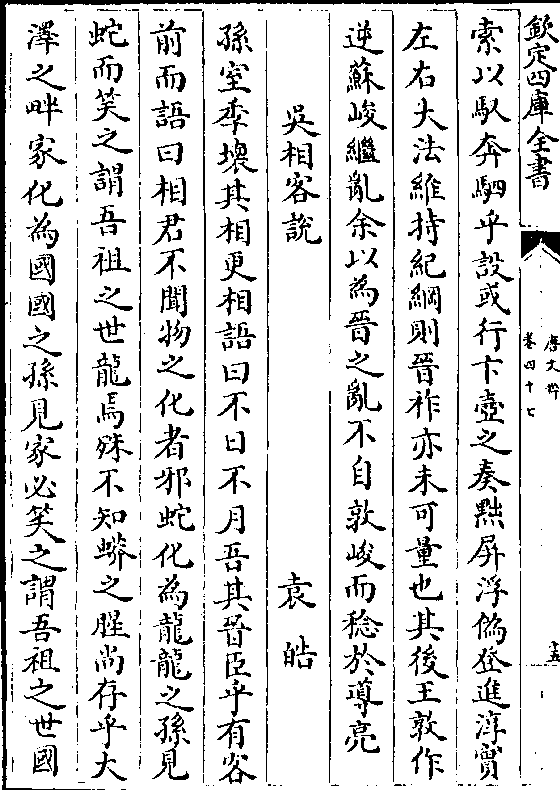 欽定四庫全書
唐文粹
卷四十七
十五
索以馭奔駟乎設或行卞壺之奏黜屏浮偽登進淳實
左右大法維持紀綱則晉祚亦未可量也其後王敦作
逆蘇峻繼亂余以為晉之亂不自敦峻而稔於導亮
吳相客說 袁皓
孫室季壞其相更相語曰不日不月吾其晉臣乎有客
前而語曰相君不聞物之化者邪蛇化為龍龍之孫見
蛇而笑之謂吾祖之世龍焉殊不知蟒之腥尚存乎大
澤之畔家化為國國之孫見家必笑之謂吾祖之世國